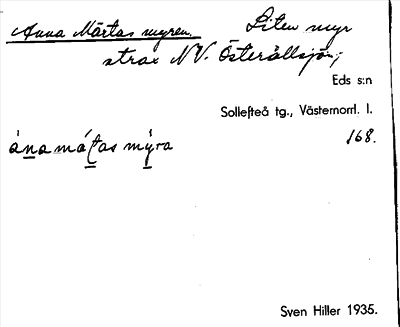 Anna Märtas myren. Liten myr
strax NV. Österållsjön;
Eds s:n
Sollefteå tg., Västernorrl. l.
168.
ána má̱tas mýra
Sven Hiller 1935.